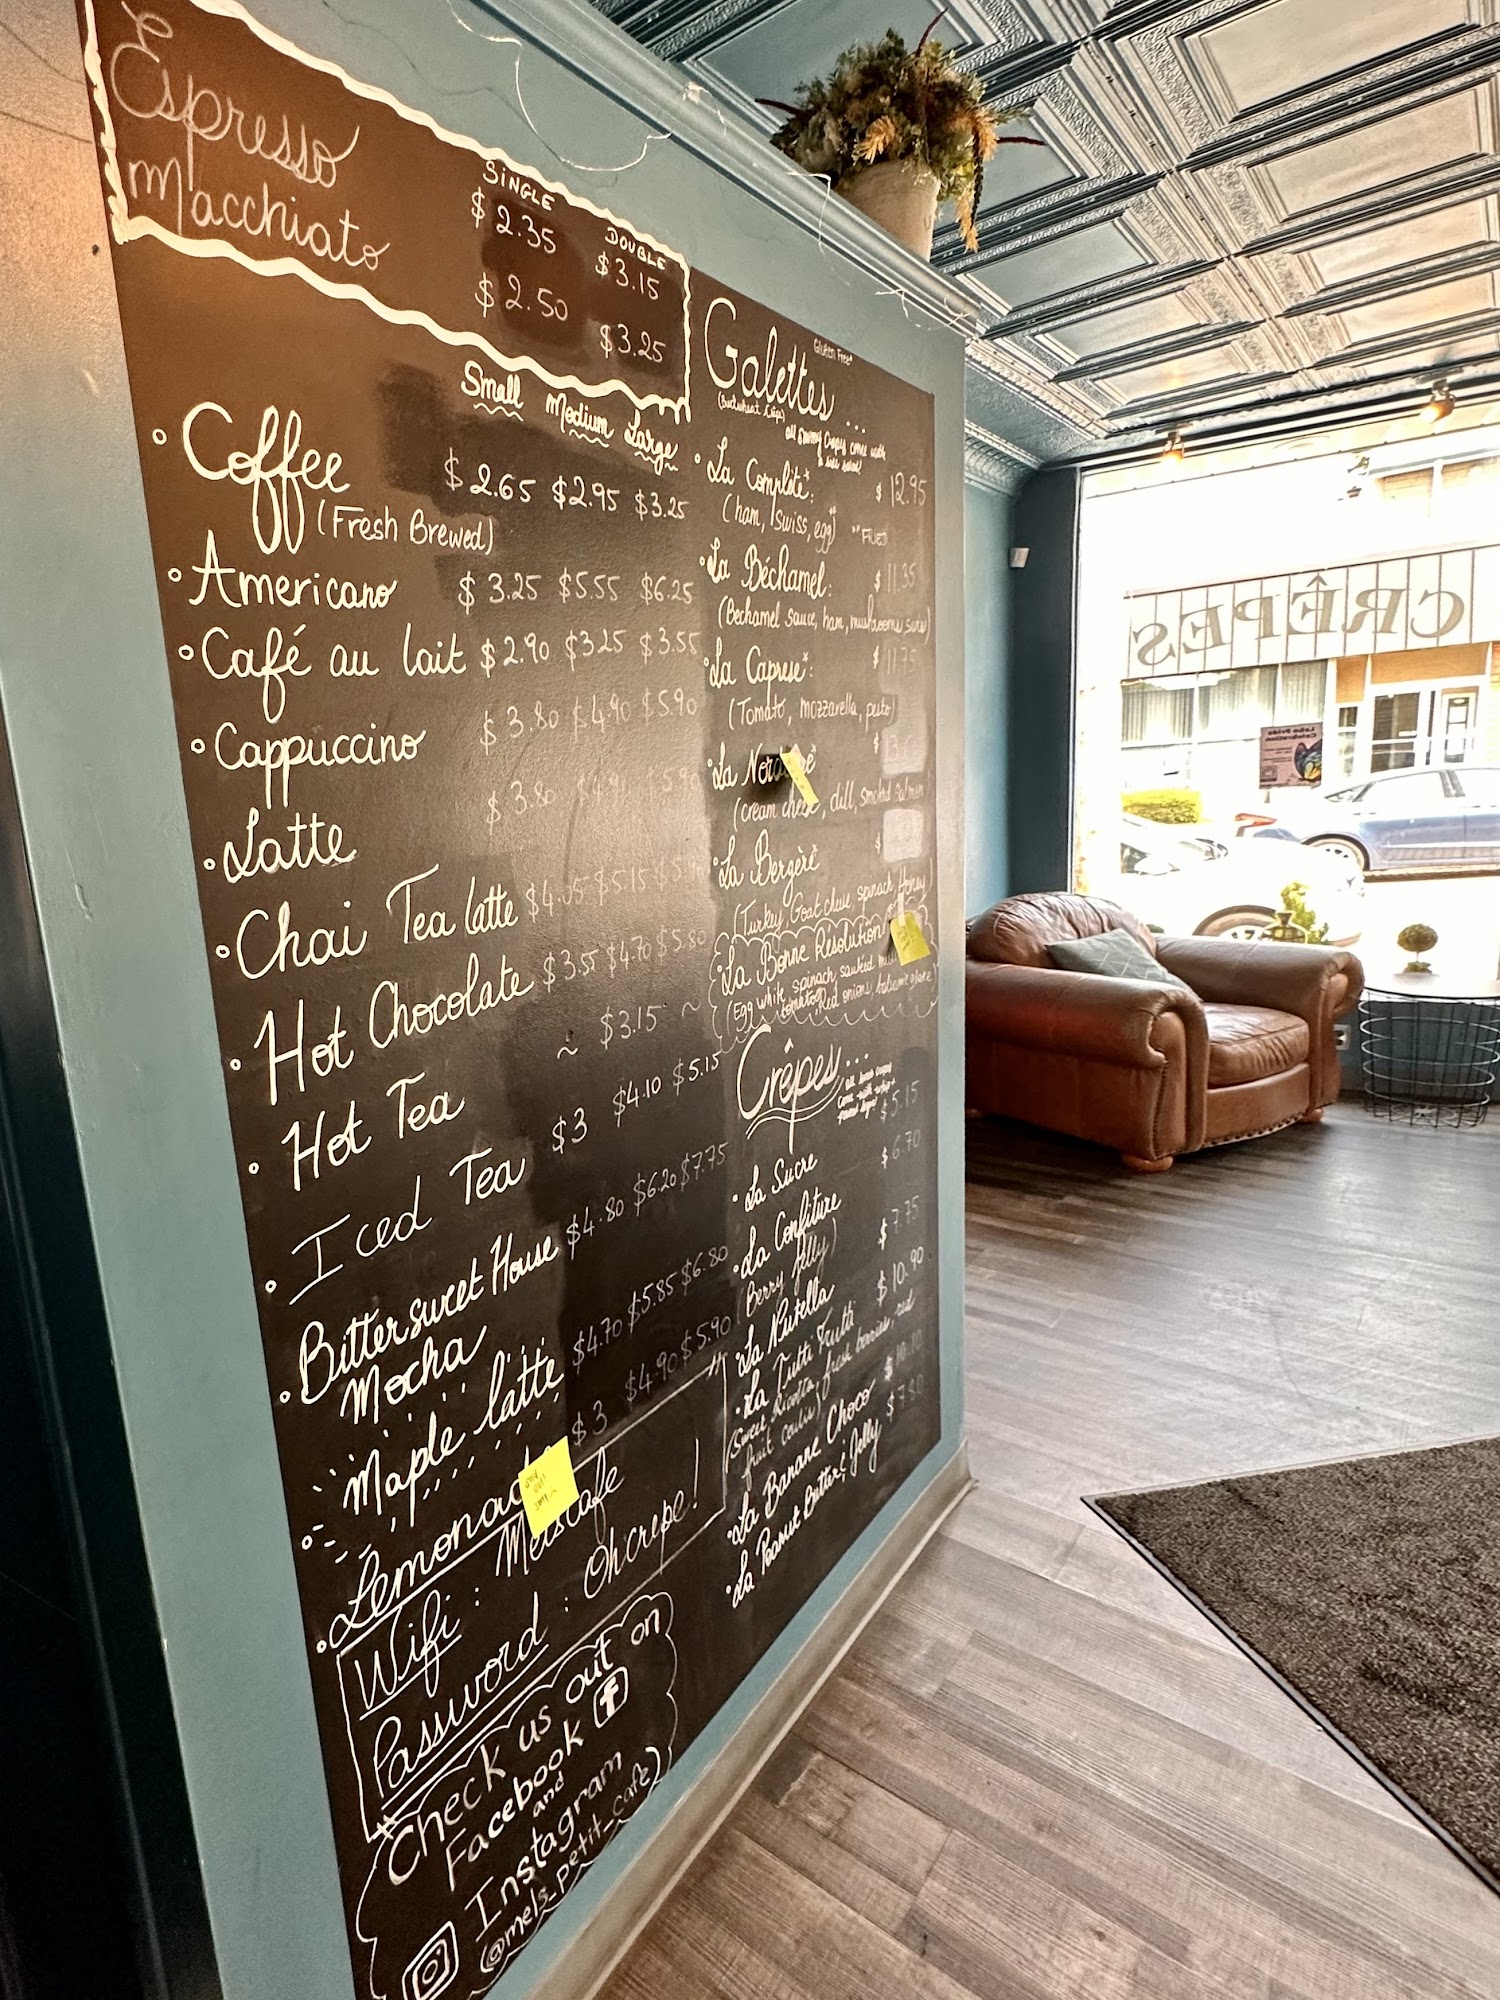 Espresso
Macchiato
SINGLE
DOUBLE
$2.35
$3.15
$2.50
$3.25
Small Medium Large
Coffee $2.65 $2.95 $3.25
(Fresh Brewed)
Americano $3.25 $5.55 $6.25
Café au lait $2.90 $3.25 $3.55
Cappuccino $3.80 $4.90 $5.90
Latte $3.80
Chai Tea latte $5.15
Hot Chocolate $3.55 $4.70 $5.80
Hot Tea ~ $3.15 ~
Iced Tea $3 $4.10 $5.15
Bittersweet House $4.80 $6.20 $7.75
Mocha
Maple latte $4.70 $5.85 $6.80
Lemonad $3 $4.90 $5.90
Wifi : Melscafe
Password : Ohcrepe!
Check us out on
Facebook f
and
Instagram
@mels_petit_café
Galettes...
Gluten Free*
(Buckwheat Crêpe)
all savory crepes come with
a side salad
La Complète*: $12.95
(ham, swiss, egg**) **FRIED
La Béchamel: $11.35
(Bechamel sauce, ham, mushrooms, swiss)
La Caprese*: $11.75
(Tomato, mozzarella, pesto)
La
(cream cheese, dill, smoked salmon
La Bergèrè $
(Turkey, Goat cheese, spinach, Honey
La Bonne Résolution
(Egg white, spinach, sautéed
tomatoes, Red onions, balsamic glaze)
Crêpes...
La Sucre $5.15
La Confiture $6.70
Berry Jelly)
La Nutella $7.75
La Tutti Frutti $10.90
(sweet Ricotta, fresh berries, red
fruit coulis)
La Banane Choco
La Peanut Butter & Jelly
CRÊPES
Lake Pride
Celebration